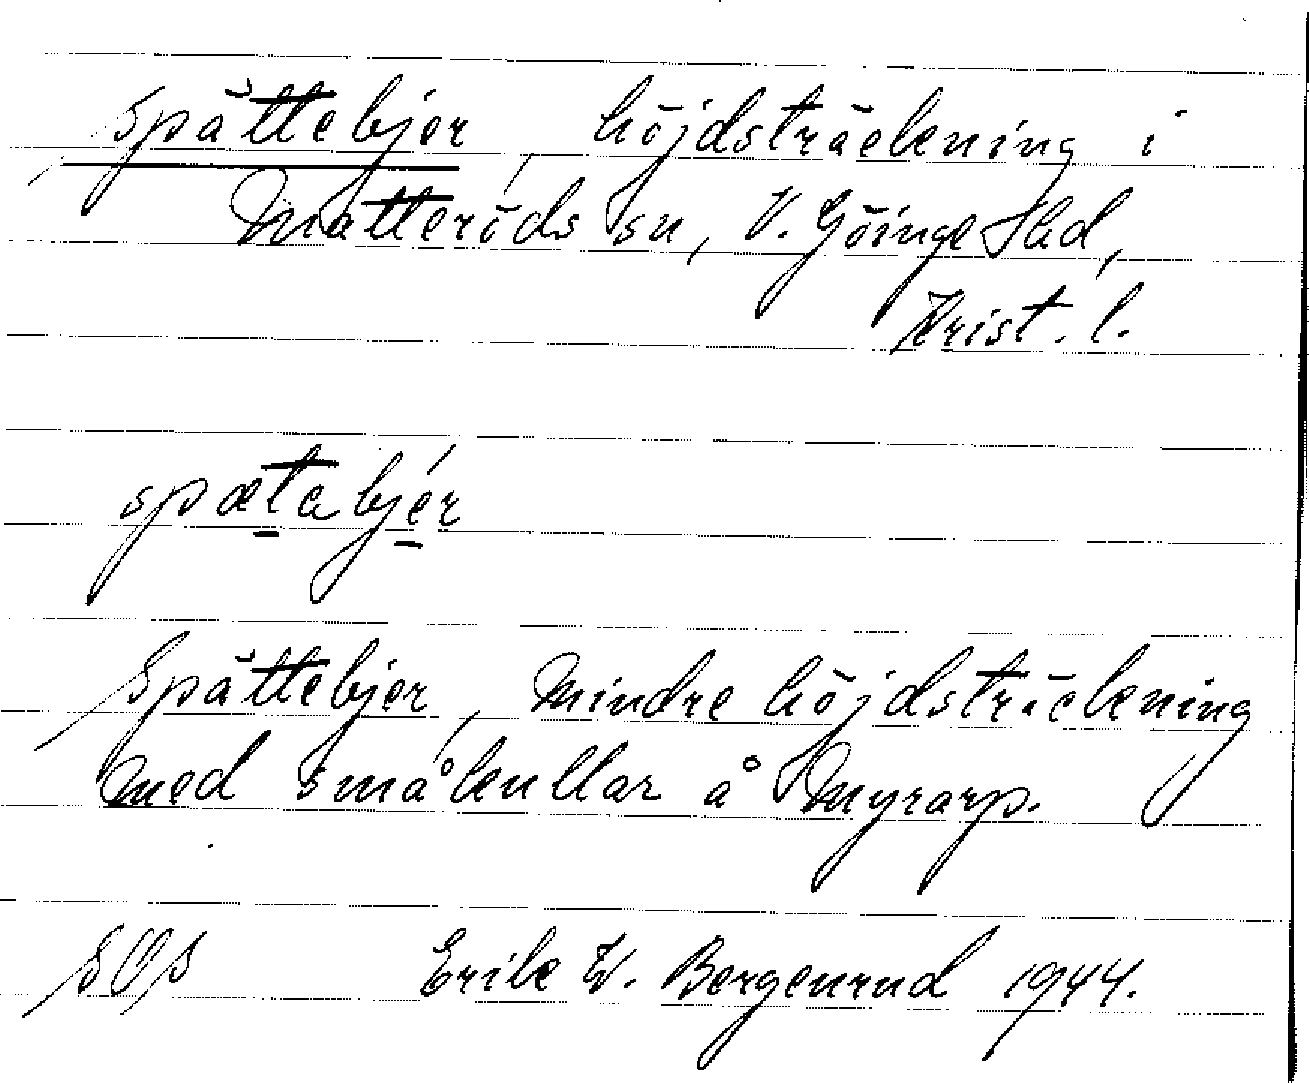 Spättebjer, höjdsträckning i
Matteröds sn, V. Göinge hd,
Krist. l.
spætabjér
Spättebjer, mindre höjdsträckning
med småkullar å Myrarp.
SOS Erik W. Bergenrud 1944.